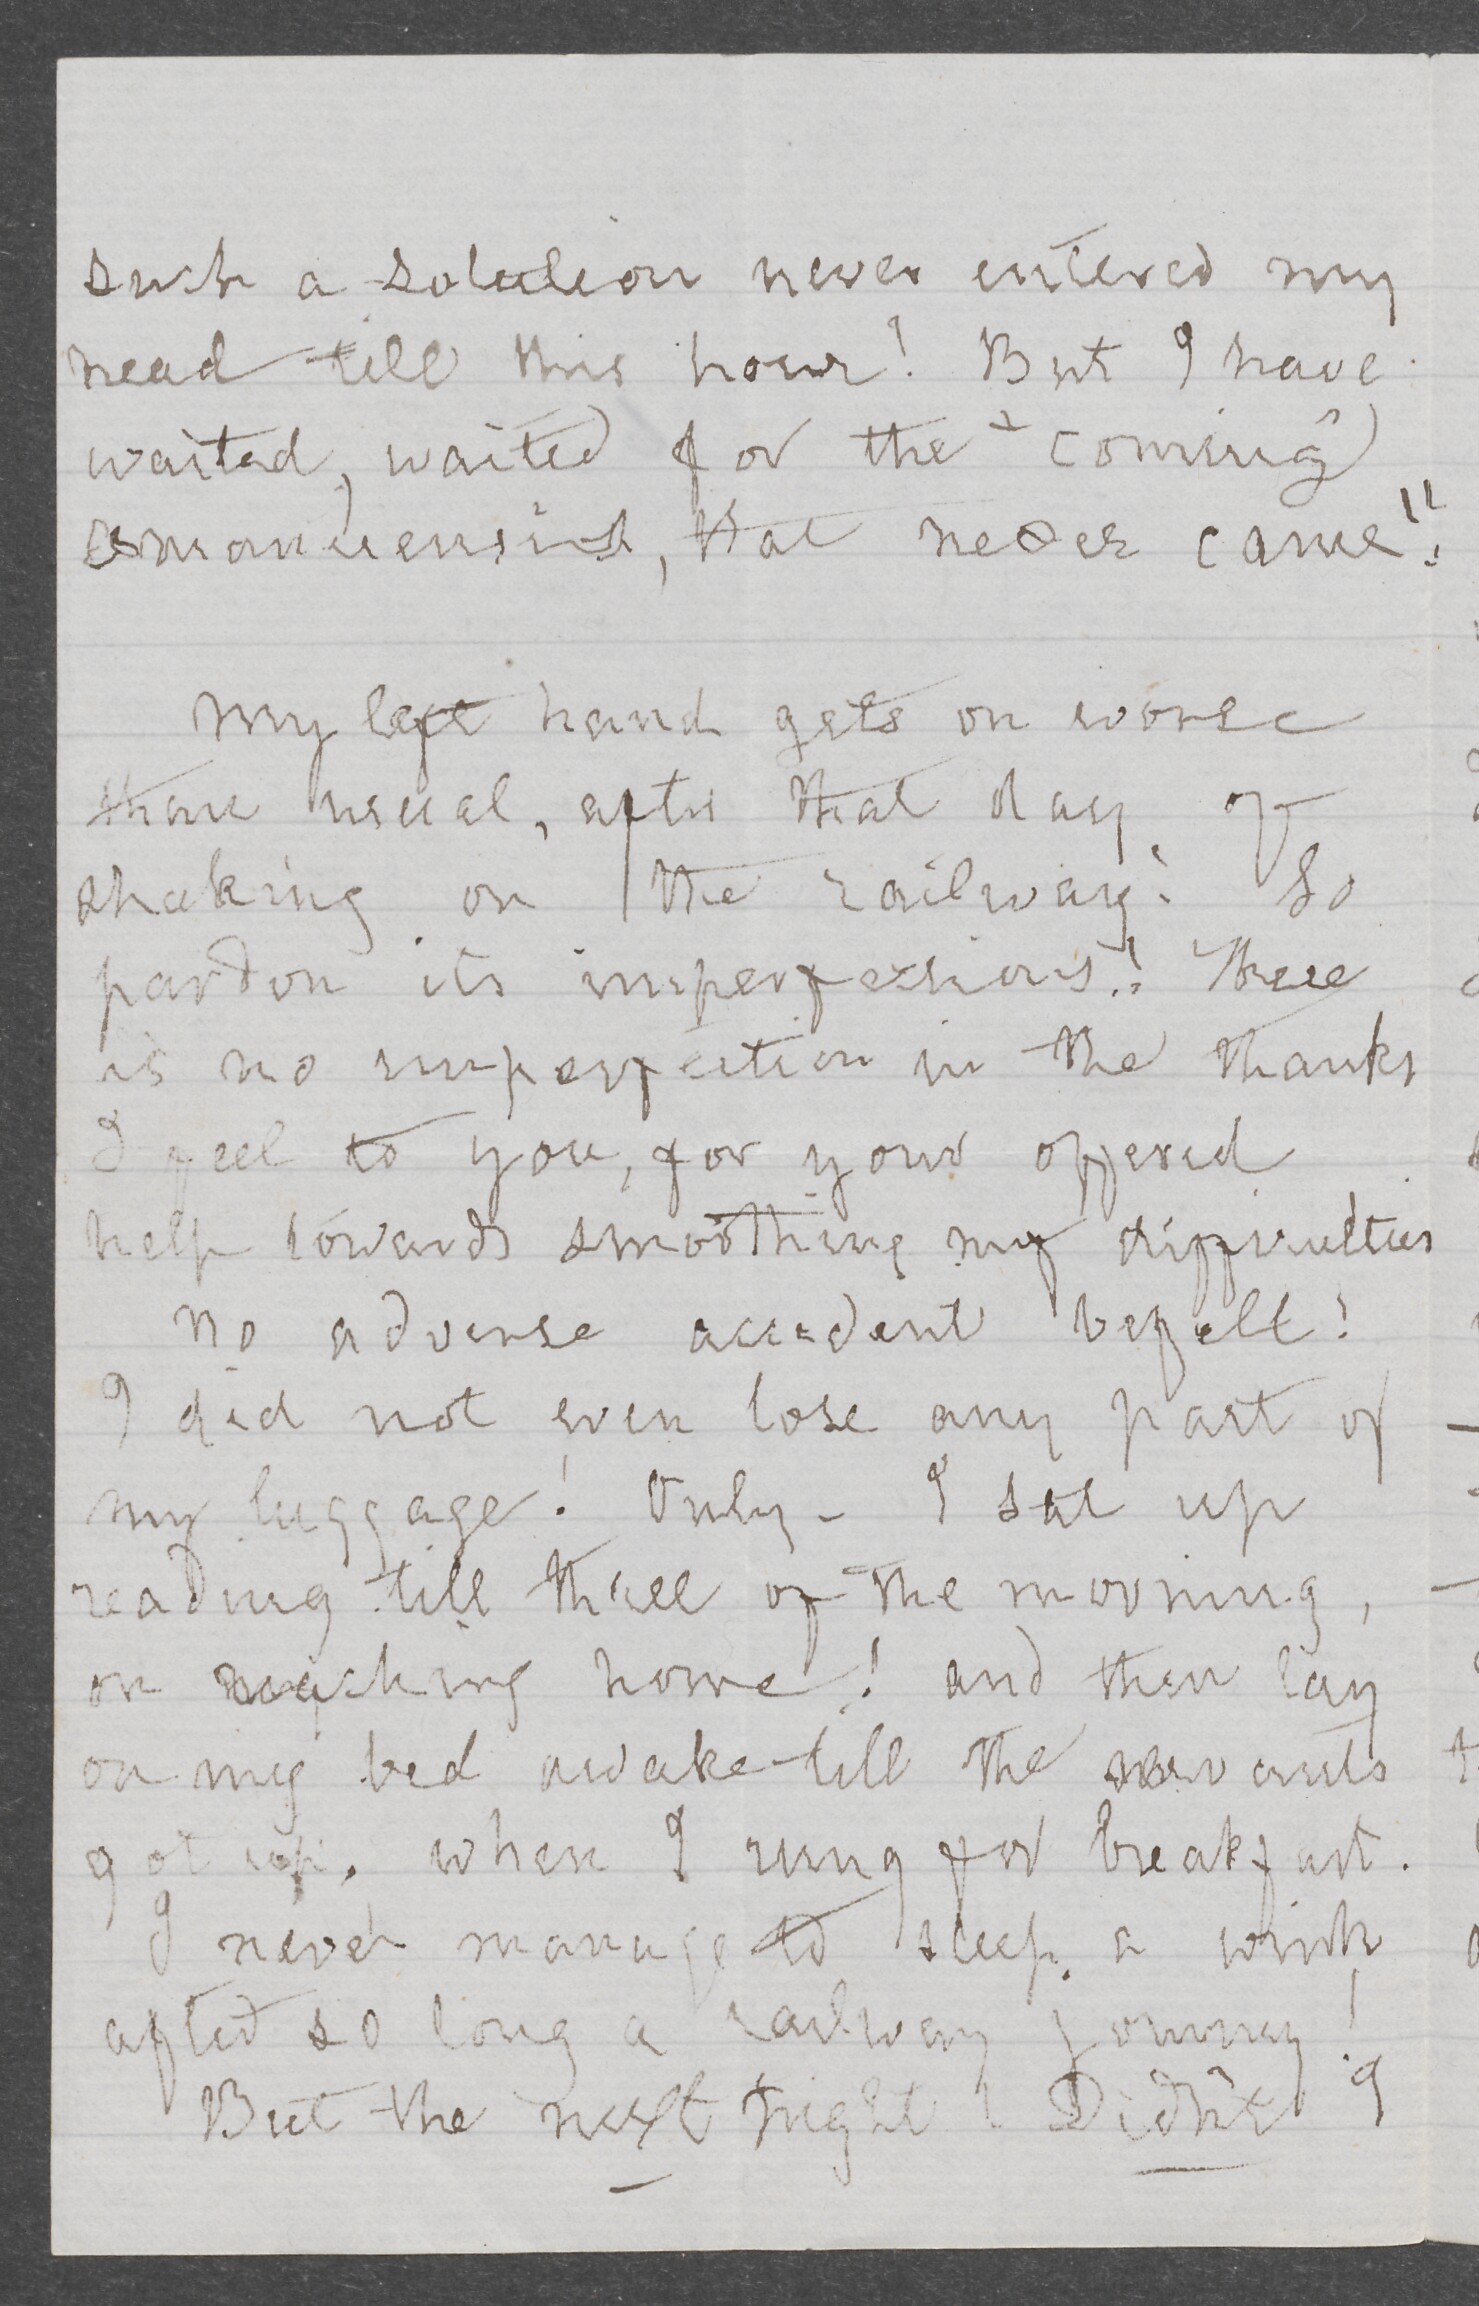 such a solution never entered my
head till this hour! But I have
waited, waited for the "coming"
amanuensis, that never came"!
My left hand gets on worse
than usual, after that day of
shaking on the railway! So
pardon its imperfections! There
is no imperfection in the thanks
I feel to you, for your offered
help towards smoothing my difficulties
No adverse accident befell!
I did not even lose any part of
my luggage! Only - I sat up
reading till three of the morning,
on reaching home! and then lay
on my bed awake till the servants
got up. when I rung for breakfast.
I never manage to sleep a wink
after so long a railway journey!
But the next night! Didn't I